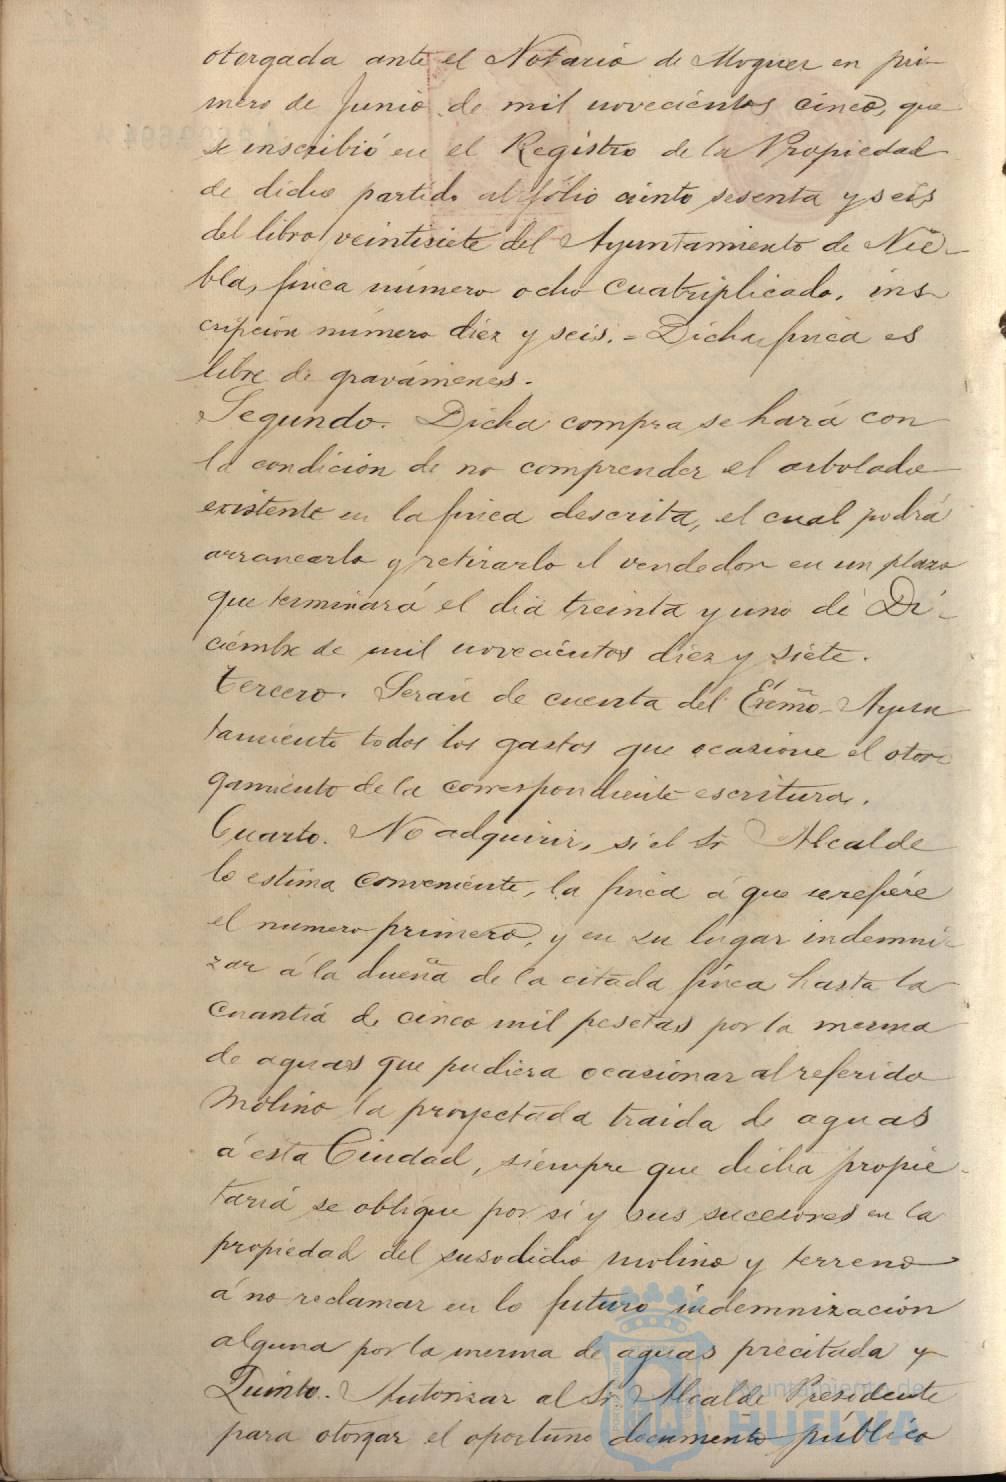 otorgada ante el Notario de Moguer en pri-
mero de Junio de mil novecientos cinco, que
se inscribió en el Registro de la Propiedad
de dicho partido al fólio ciento sesenta y seis
del libro veintisiete del Ayuntamiento de Nie-
bla, finca número ocho cuatriplicado, ins-
cripción número diez y seis. = Dicha finca es
libre de gravámenes.
Segundo. Dicha compra se hará con
la condición de no comprender el arbolado
existente en la finca descrita, el cual podrá
arrancarlo y retirarlo el vendedor en un plazo
que terminará el dia treinta y uno de Di-
ciembre de mil novecientos diez y siete.
Tercero. Serán de cuenta del Excmo. Ayun
tamiento todos los gastos que ocasione el otor-
gamiento de la correspondiente escritura.
Cuarto. No adquirir, si el Sr Alcalde
lo estima conveniente, la finca á que se refiere
el numero primero, y en su lugar indemni-
zar á la dueña de la citada finca hasta la
cuantiá de cinco mil pesetas por la merma
de aguas que pudiera ocasionar al referido
Molino la proyectada traida de aguas
á esta Ciudad, siempre que dicha propie-
tariá se oblique por si y sus sucesores en la
propiedad del susodicho molino y terreno
á no reclamar en lo futuro indemnización
alguna por la merma de aguas precitada y
Quinto. Autorizar al Sr Alcalde Presidente
para otorgar el oportuno documento público
Ayuntamiento de
HUELVA